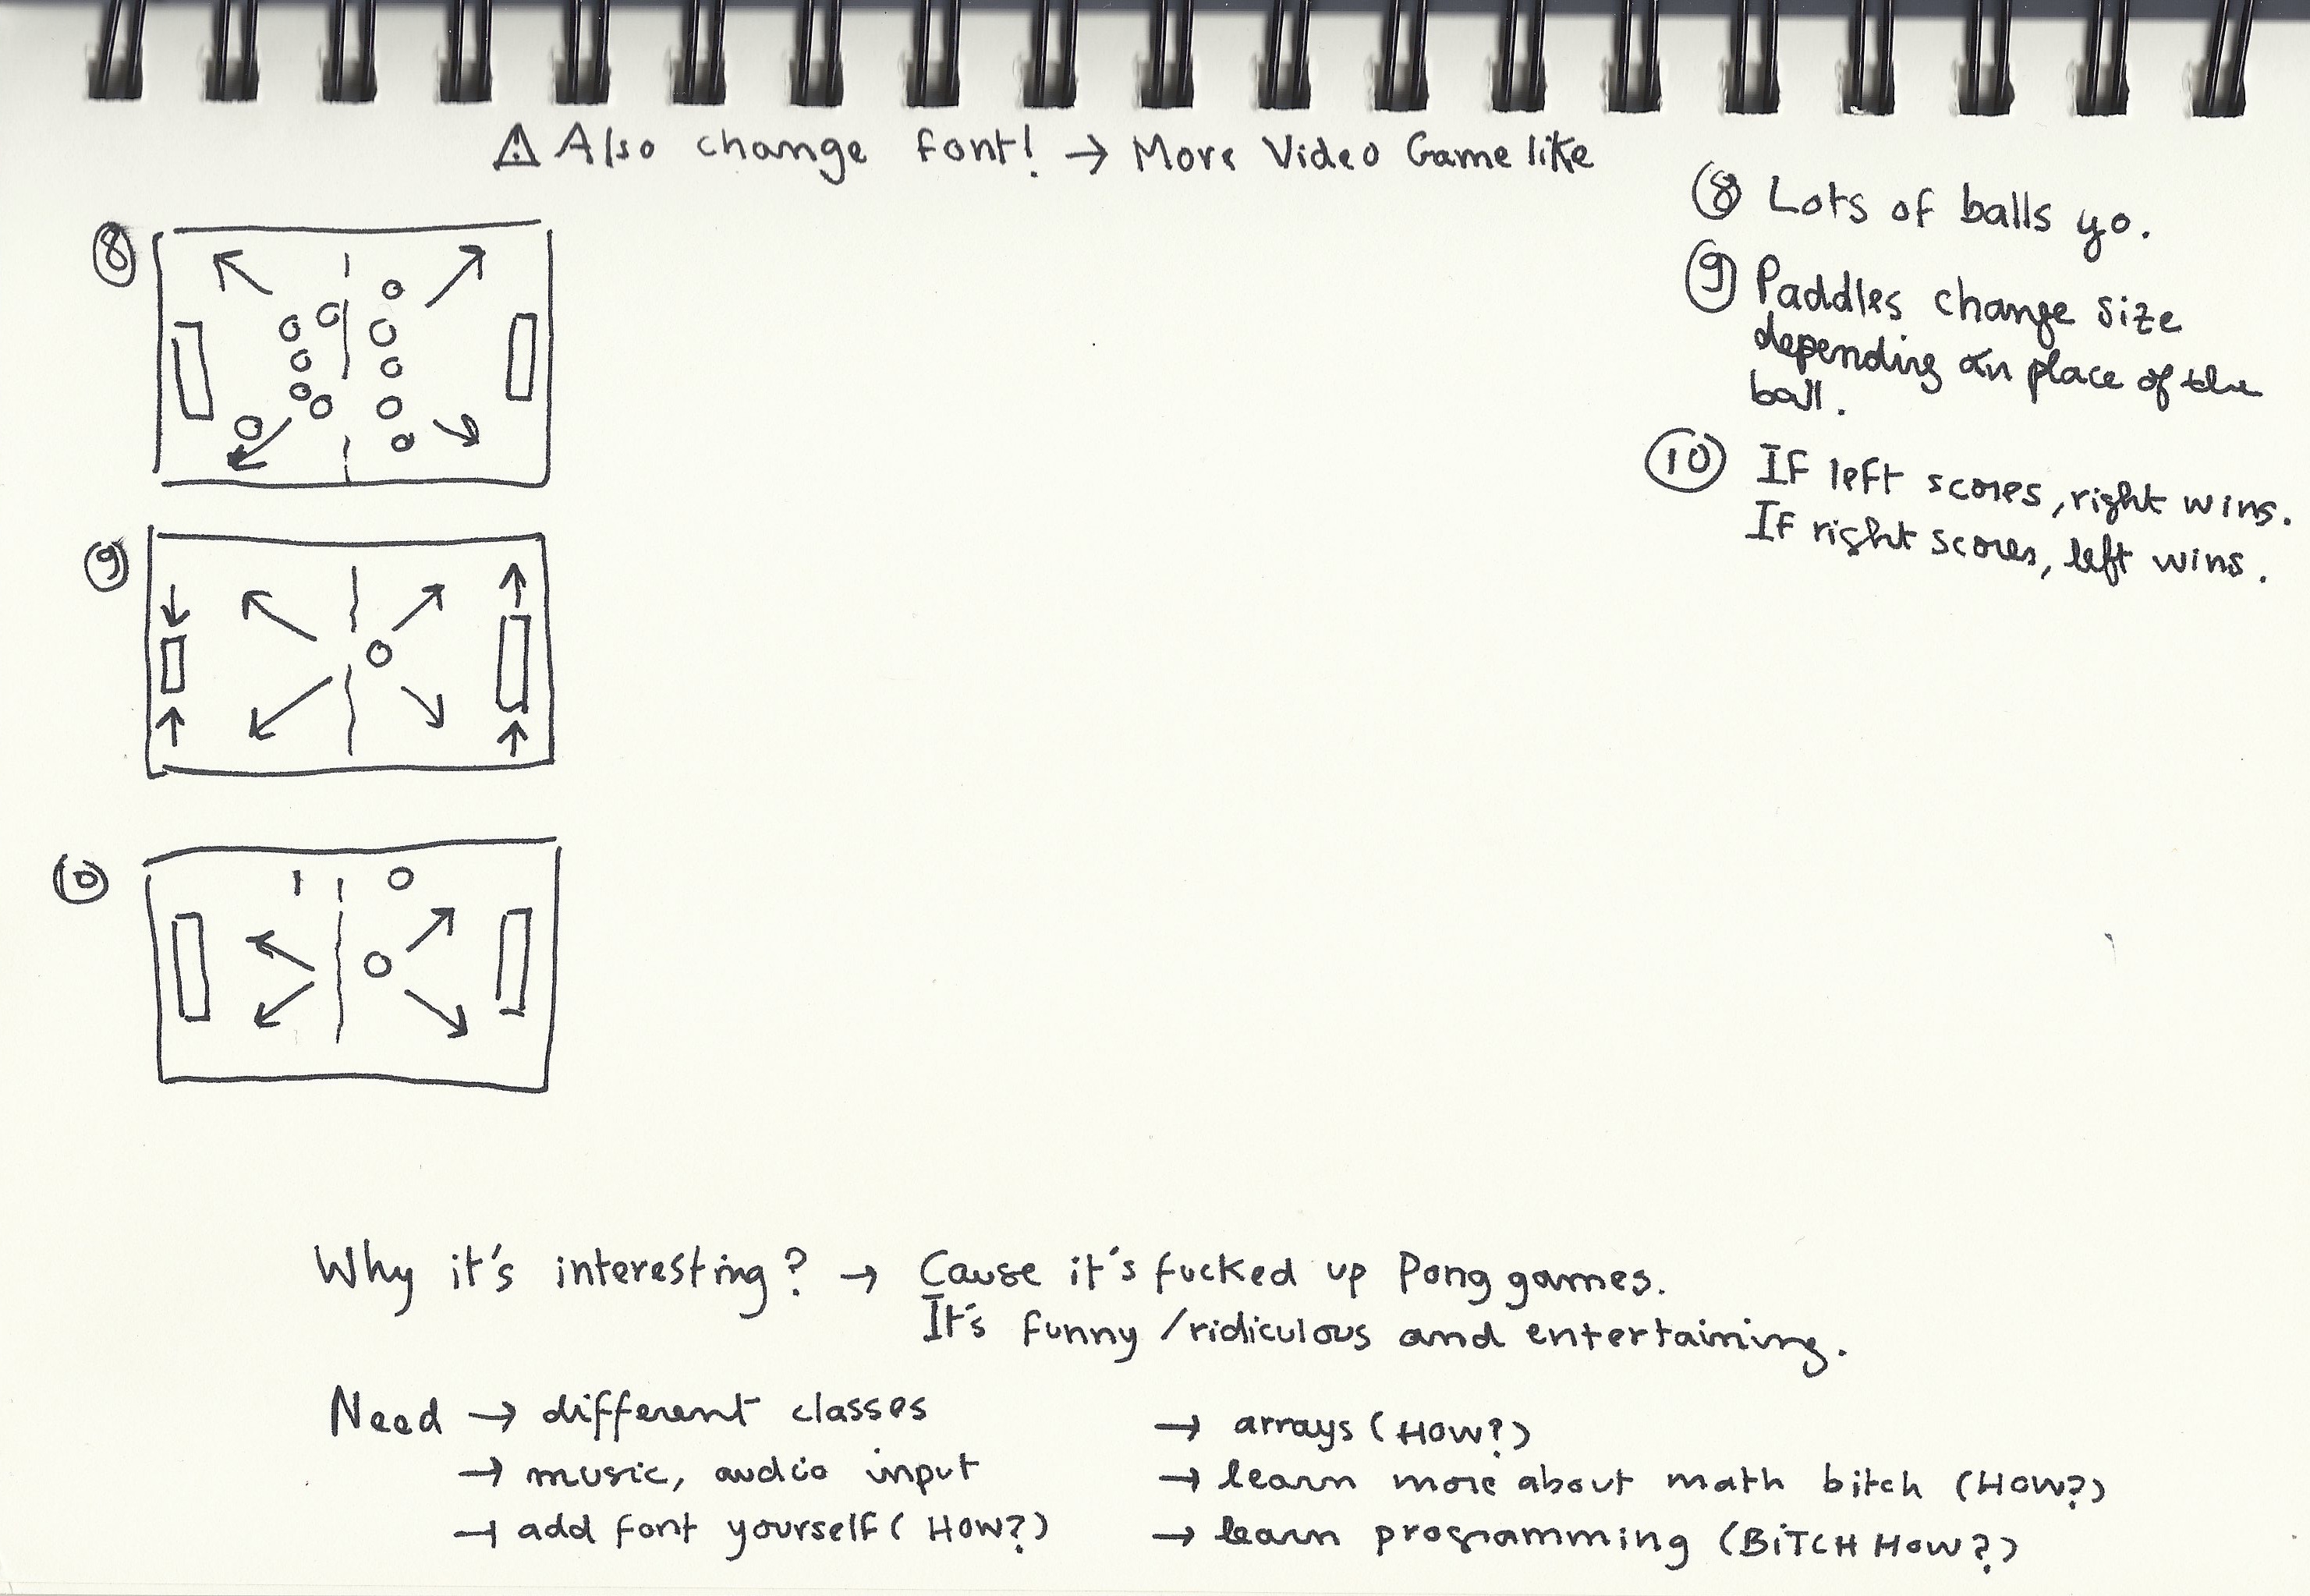 ⚠ Also change font! → More Video Game like
⑧ Lots of balls yo.
⑨ Paddles change size
depending on place of the
ball.
⑩ If left scores, right wins.
If right scores, left wins.
⑧
⑨
⑩
1 0
Why it's interesting? → Cause it's fucked up Pong games.
It's funny/ridiculous and entertaining.
Need → different classes
→ music, audio input
→ add font yourself (HOW?)
→ arrays (HOW?)
→ learn more about math bitch (HOW?)
→ learn programming (BiTCH HOW?)